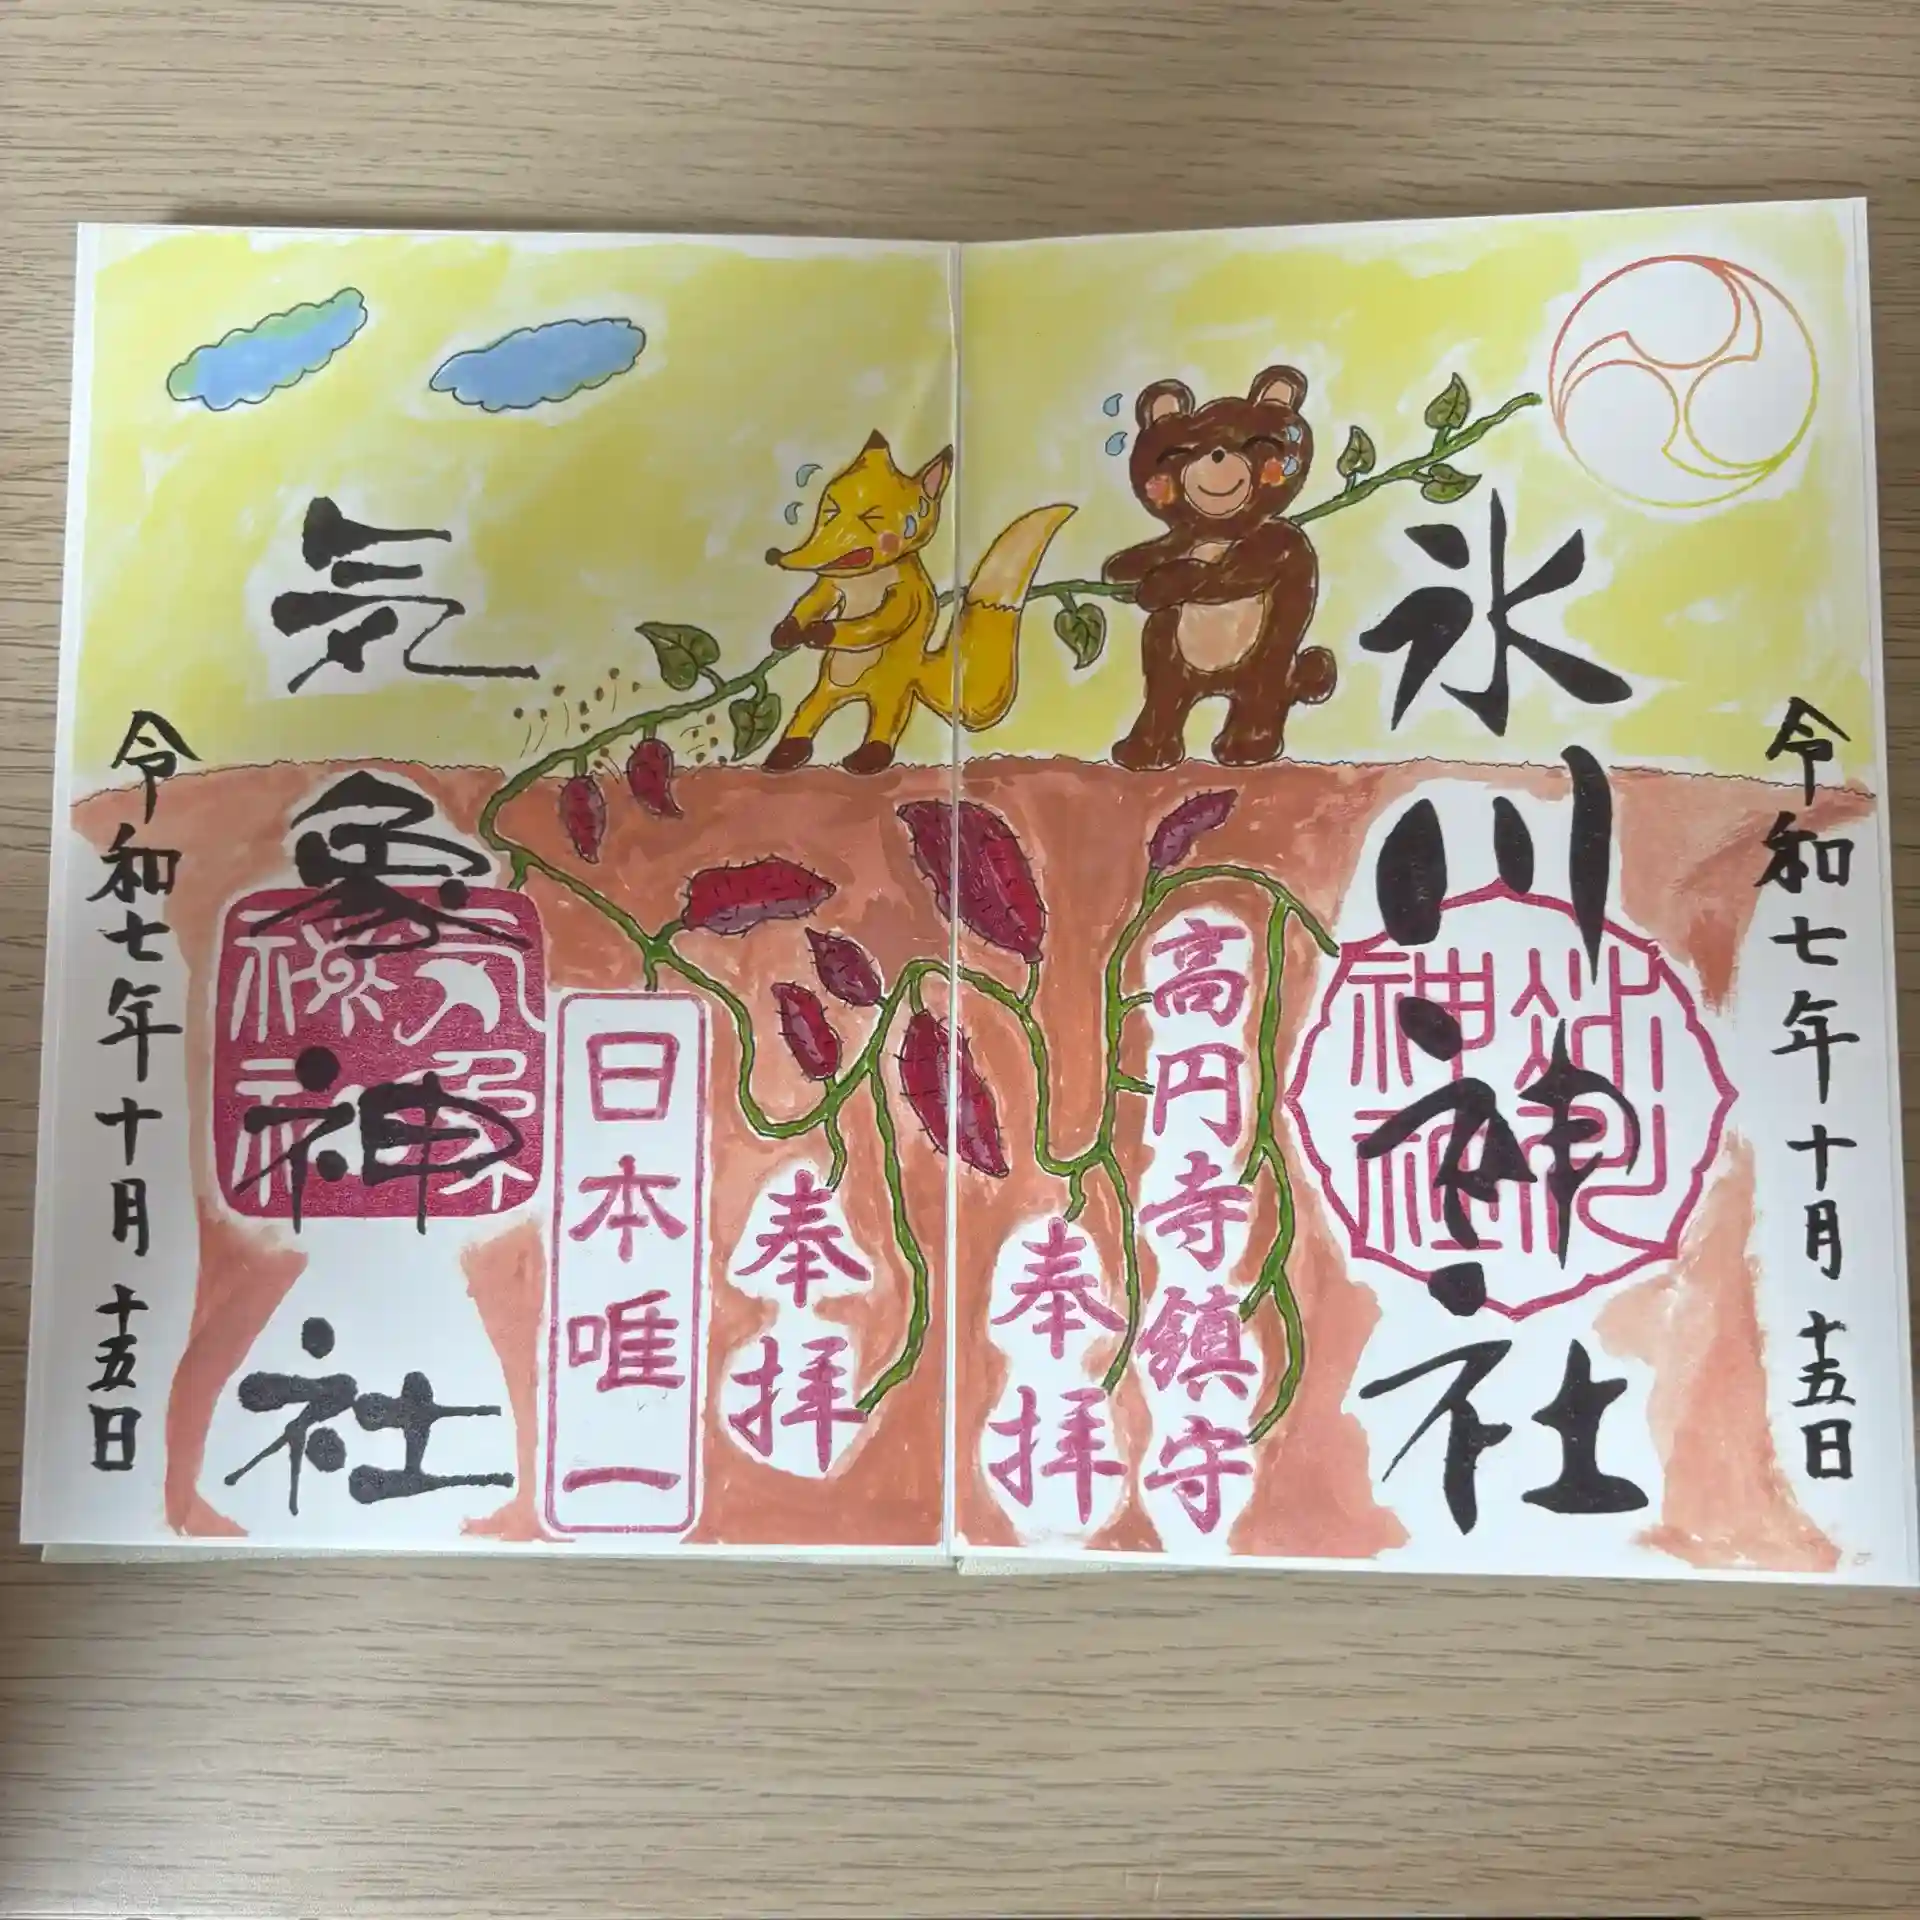 令和七年十月十五日
氷川神社
高円寺鎮守
奉拝
奉拝
日本唯一
気象神社
令和七年十月十五日